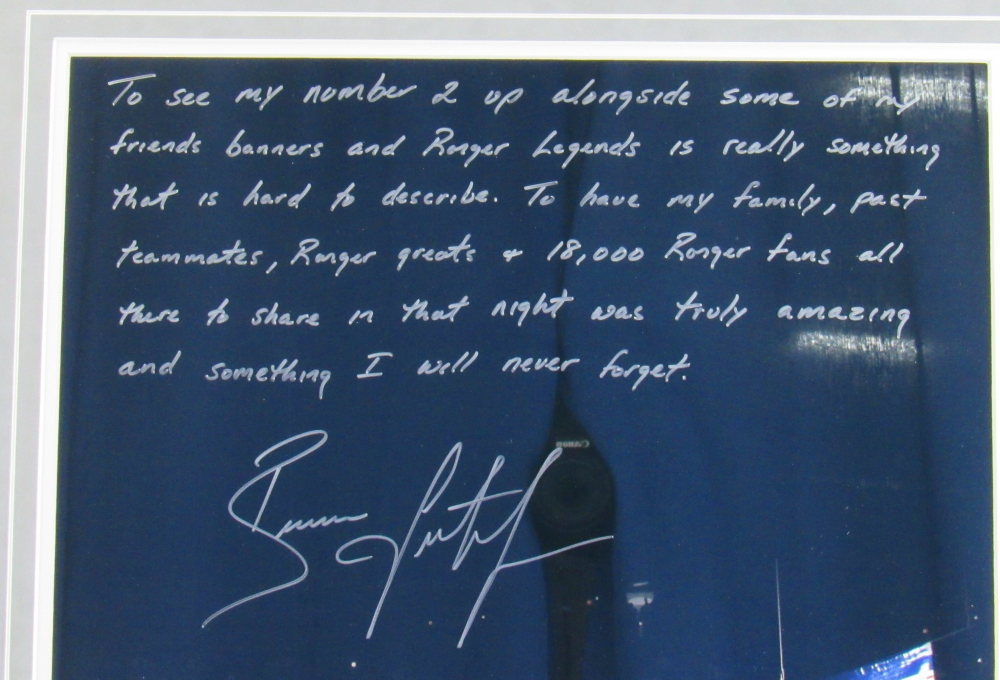 To see my number 2 up alongside some of my
friends banners and Ranger Legends is really something
that is hard to describe. To have my family, past
teammates, Ranger greats & 18,000 Ranger fans all
there to share in that night was truly amazing
and something I will never forget.
Canon
Brian Leetch